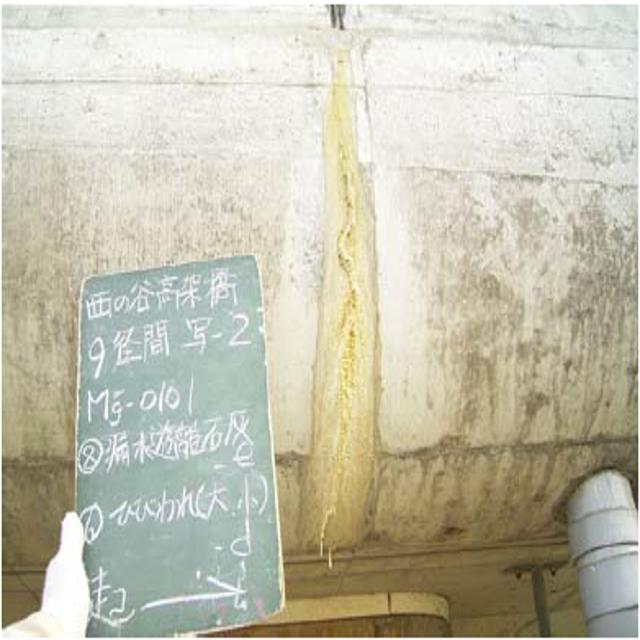 西の谷高架橋
9径間 写-2
Mg-0101
⑧漏水遊離石灰
e
⑦ひびわれ(大,小)
d
起